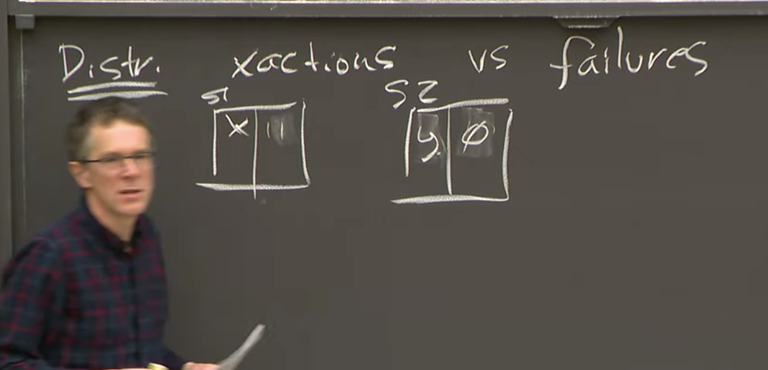 Distr. xactions vs failures
S1 S2
x 11 y ø